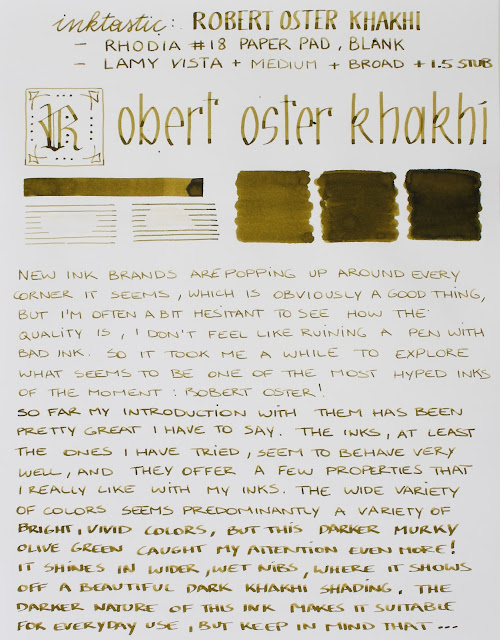 inktastic: ROBERT OSTER KHAKHI
- RHODIA #18 PAPER PAD, BLANK
- LAMY VISTA + MEDIUM + BROAD + 1.5 STUB
Robert oster khakhi
NEW INK BRANDS ARE POPPING UP AROUND EVERY
CORNER IT SEEMS, WHICH IS OBVIOUSLY A GOOD THING,
BUT I'M OFTEN A BIT HESITANT TO SEE HOW THE
QUALITY IS, I DON'T FEEL LIKE RUINING A PEN WITH
BAD INK. SO IT TOOK ME A WHILE TO EXPLORE
WHAT SEEMS TO BE ONE OF THE MOST HYPED INKS
OF THE MOMENT: ROBERT OSTER!
SO FAR MY INTRODUCTION WITH THEM HAS BEEN
PRETTY GREAT I HAVE TO SAY. THE INKS, AT LEAST
THE ONES I HAVE TRIED, SEEM TO BEHAVE VERY
WELL, AND THEY OFFER A FEW PROPERTIES THAT
I REALLY LIKE WITH MY INKS. THE WIDE VARIETY
OF COLORS SEEMS PREDOMINANTLY A VARIETY OF
BRIGHT, VIVID COLORS, BUT THIS DARKER MURKY
OLIVE GREEN CAUGHT MY ATTENTION EVEN MORE!
IT SHINES IN WIDER, WET NIBS, WHERE IT SHOWS
OFF A BEAUTIFUL DARK KHAKHI SHADING. THE
DARKER NATURE OF THIS INK MAKES IT SUITABLE
FOR EVERYDAY USE, BUT KEEP IN MIND THAT ...